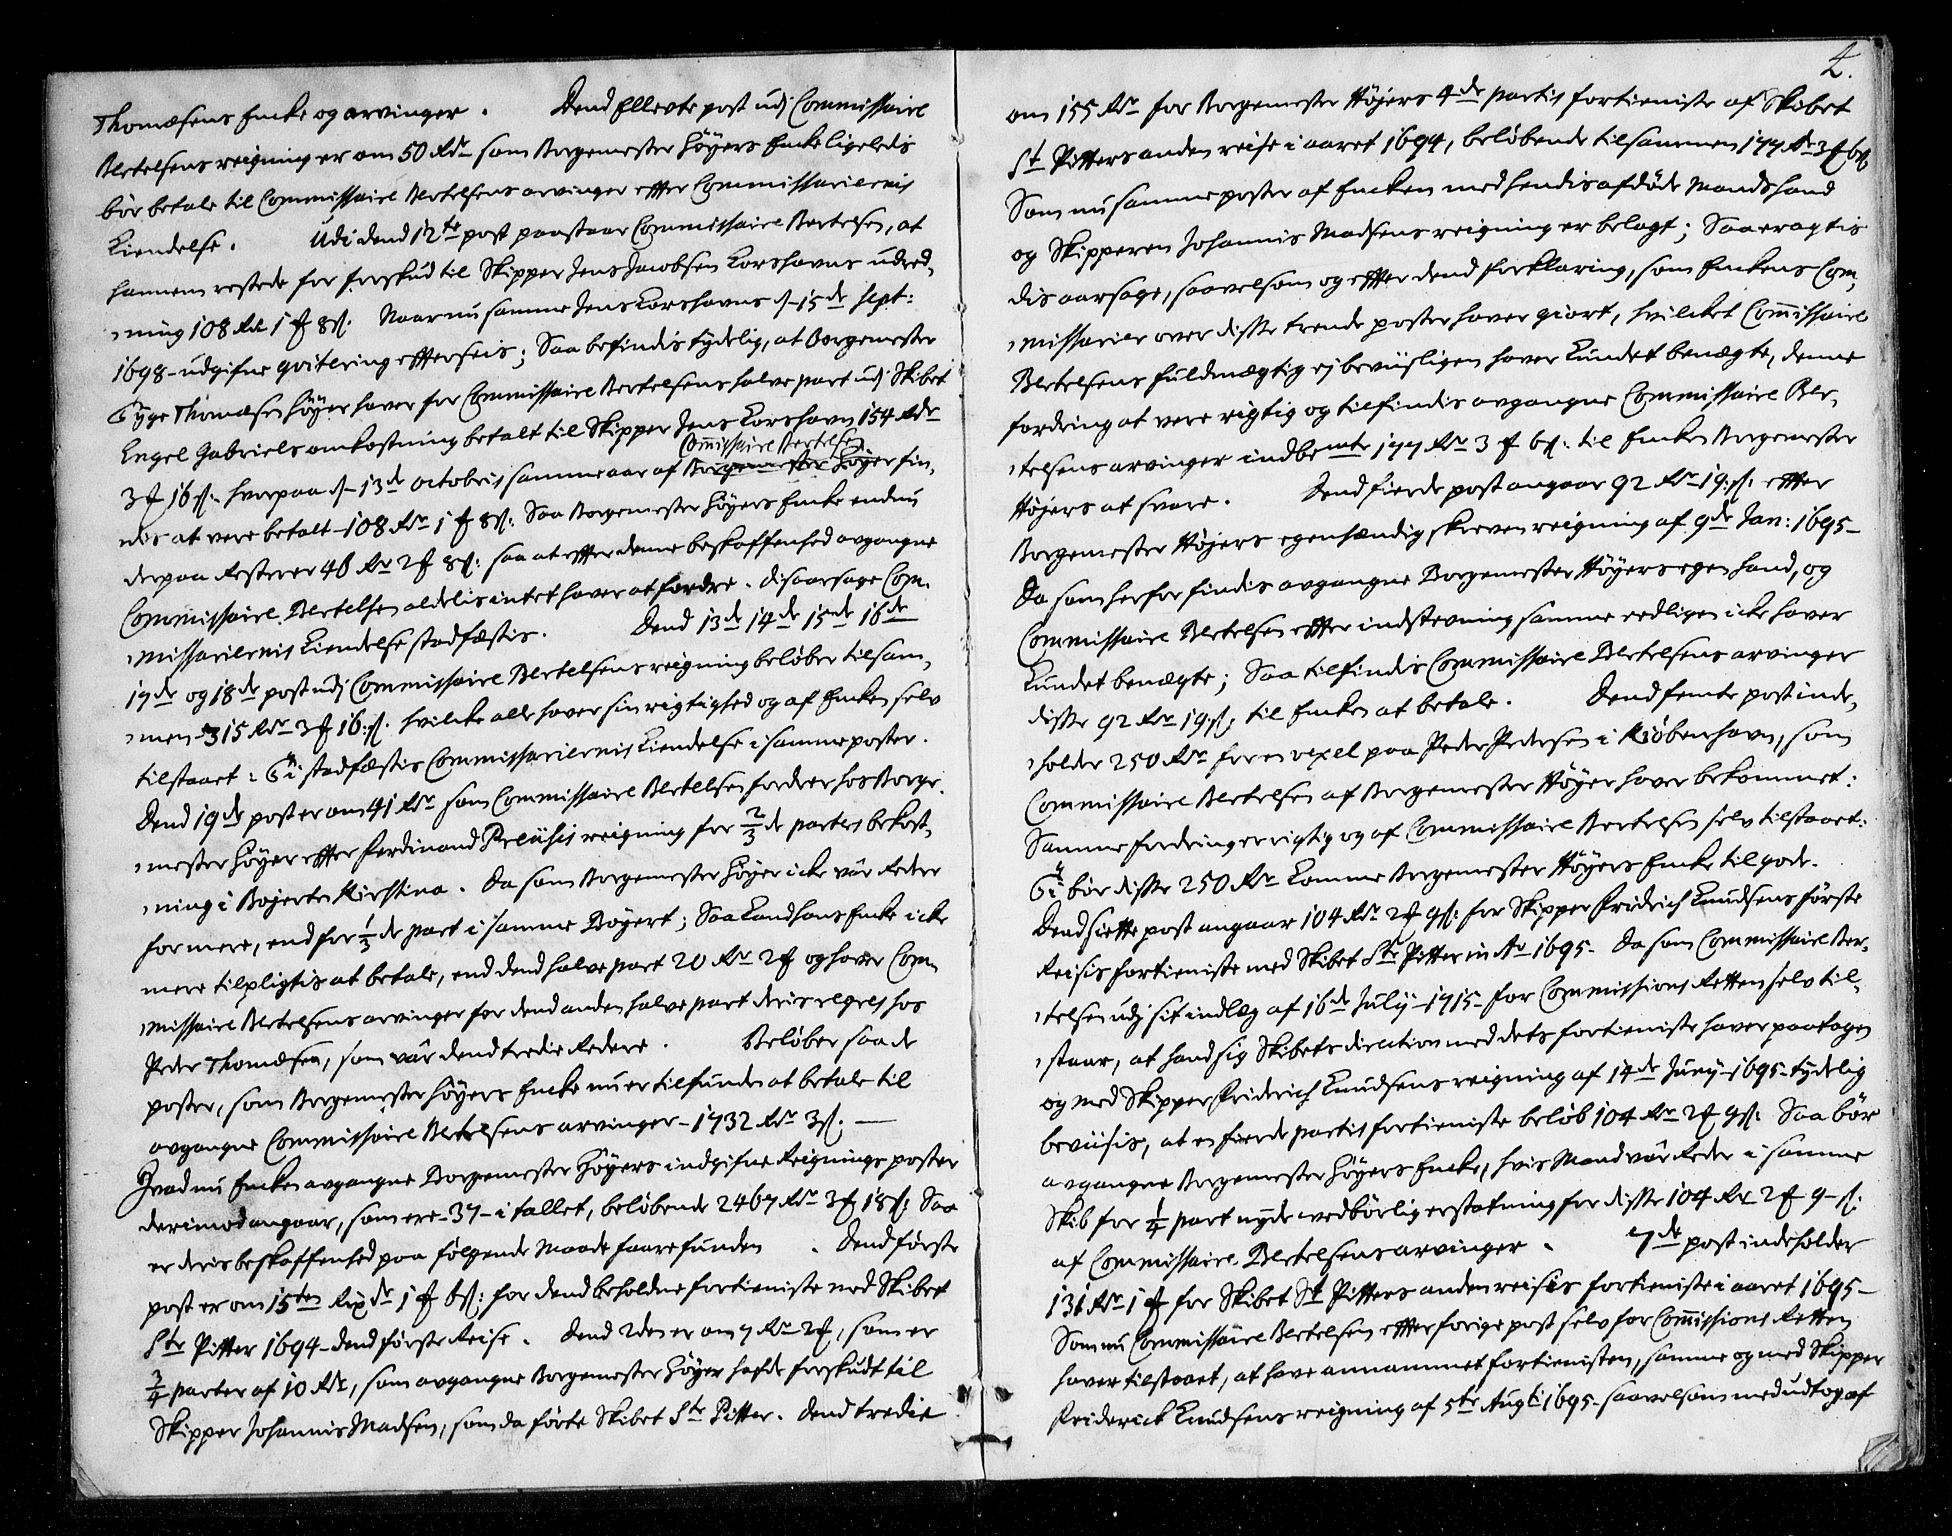 Thomæsens Encke og arvinger. Dend Ellevte post udj Commissaire
Bertelsens reigning er om 50 Rdr som Borgemester Höyers Encke ligeledis
bör betale til Commissaire Bertelsens arvinger effter Commissariernis
Kiendelse. Udi dend 12te post paastaar Commissaire Bertelsen, at
hannem restede for forskud til Skipper Jens Jacobsen Korshavns udred,
,ning 108 Rdr 1 ℔ 8 s: Naar nu samme Jens Korshavns d- 15de Sept:
1698- udgifne qvitering effterseis; Saa befindis tydelig, at Borgemester
Tyge Thomæsen Höyer haver for Commissaire Bertelsens halve part udj Skibet
Engel Gabriels omkostning betalt til Skipper Jens Korshavn 154 Rdr
3 ℔ 16 s: hvorpaa d- 13de octobris samme aar af Commissaire Bertelsen fin,
,dis at vere betalt- 108 Rdr 1 ℔ 8 s: Saa Borgemester Höyers Encke endnu
derpaa Resterer 46 Rdr 2 ℔ 8 s: saa at effter denne beskaffenhed avgangne
Commissaire Bertelsen aldelis intet haver at fordre. disaarsage Com,
,missariernis Kiendelse stadfæstis. Dend 13de 14de 15de 16de
17de og 18de post udj Commissaire Bertelsens reigning belöber tilsam,
,men 315 Rdr 3 ℔ 16: s. hvilcke alle haver sin rigtighed og af Encken selv
tilstaaet: Ti stadfæstis Commissariernis Kiendelse i samme poster.
Dend 19de post er om 41 Rdr som Commissaire Bertelsen fordrer hos Borge,
,mester Höyer effter Ferdinand Preüsis reigning for 2/3de parters bekost,
,ning i Bojerten Kirstina. Da som Borgemester Höyer icke vâr Reder
for mere, end for 1/3de part i samme Böyert; Saa Kand hans Encke icke
mere tilpligtis at betale, end dend halve part 20 Rdr 2 ℔ og haver Com,
,missaire Bertelsens arvinger for dend anden halve part deris regres hos
Peder Thomæsen, som vâr dend tredie Redere. Belöber saa de
poster, som Borgemester Höyers Encke nu er tilfunden at betale til
avgangne Commissaire Bertelsens arvinger- 1732 Rdr 3 s: —
Hvad nu Encken avgangne Borgemester Höyers indgifne Reignings poster
derimod angaar, som ere- 37- i tallet, belöbende 2467 Rdr 3 ℔ 18 s: Saa
er deris beskaffenhed paa fölgende Maade faarefunden. Dend förste
post er om 15ten Rixdr 1 ℔ 6 s: for dend beholdne fortieniste med Skibet
Ste Pitter 1694- dend förste Reise. Dend 2den er om 7 Rdr 2 ℔, som er
3/4 parter af 10 Rdr, som avgangne Borgemester Höyer hafde forskudt til
Skipper Johannis Madsen, som da förte Skibet Ste Pitter. Dend tredie
4.
om 155 Rdr for Borgemester Höjers 4de partis fortieniste af Skibet
St Pitters anden reise i aaret 1694, belöbende tilsammen 177 Rdr 3 ℔ 6 s
Som nu samme poster af Encken med hendis afdöde Mands haand
og Skipperen Johannis Madsens reigning er belagt; Saa eragtis
disaarsage, saavelsom og effter dend forklaring, som Enckens Com,
,missarier over disse trende poster haver giort, hvilcket Commissaire
Bertelsens fuldmægtig ej beviisligen haver Kundet benægte, denne
fordring at vere rigtig og tilfindis avgangne Commissaire Ber,
,telsens arvinger indbemte 177 Rdr 3 ℔ 6 s: til Encken Borgemester
Höjers at svare. Dend fierde post angaar 92 Rdr 19: s. effter
Borgemester Höjers egenhændig skreven reigning af 9de Jan: 1695-
Da som herfor findis avgangne Borgemester Höyers egen haand, og
Commissaire Bertelsen effter indstevning samme eedligen icke haver
Kundet benægte; Saa tilfindis Commissaire Bertelsens arvinger
disse 92 Rdr 19: s, til Encken at betale. Dend femte post inde,
,holder 250 Rdr for en vexel paa Peder Pedersen i Kiöbenhavn, som
Commissaire Bertelsen af Borgemester Höyer haver bekommet:
Samme fordring er rigtig og af Commissaire Bertelsen selv tilstaaet:
Ti bör disse 250 Rdr Komme Borgemester Höyers Encke til gode.
Dend siette post angaar 104 Rdr 2 ℔ 9 s: for Skipper Fridrich Knudsens förste
Reisis fortieniste med Skibet Ste Pitter in Ao 1695- Da som Commissaire Ber,
,telsen udj sit indlæg af 16de July- 1715- for Commissions Retten selv til,
,staar, at hand sig Skibets direction med dets fortieniste haver paatagen
og med Skipper Friderich Knudsens reigning af 14de Juny- 1695- tydelig
beviisis, at en fierde partis fortieniste belöb 104 Rdr 2 ℔ 9 s: Saa bör
avgangne Borgemester Höyers Encke, hvis Mand vâr Reder i samme
Skib for 1/4 part nyde vedbörlig erstatning for disse 104 Rdr 2 ℔ 9- s:
af Commissaire Bertelsens arvinger. 7de post indeholder
131 Rdr 1 ℔ for Skibet St Pitters anden reisis fortieniste i aaret 1695-
Som nu Commissaire Bertelsen effter forige post selv for Commissions Retten
haver tilstaaet, at have annammet fortienisten, samme og med Skipper
Friderick Knudsens reigning af 5te Augti 1695- saavelsom med udtog af